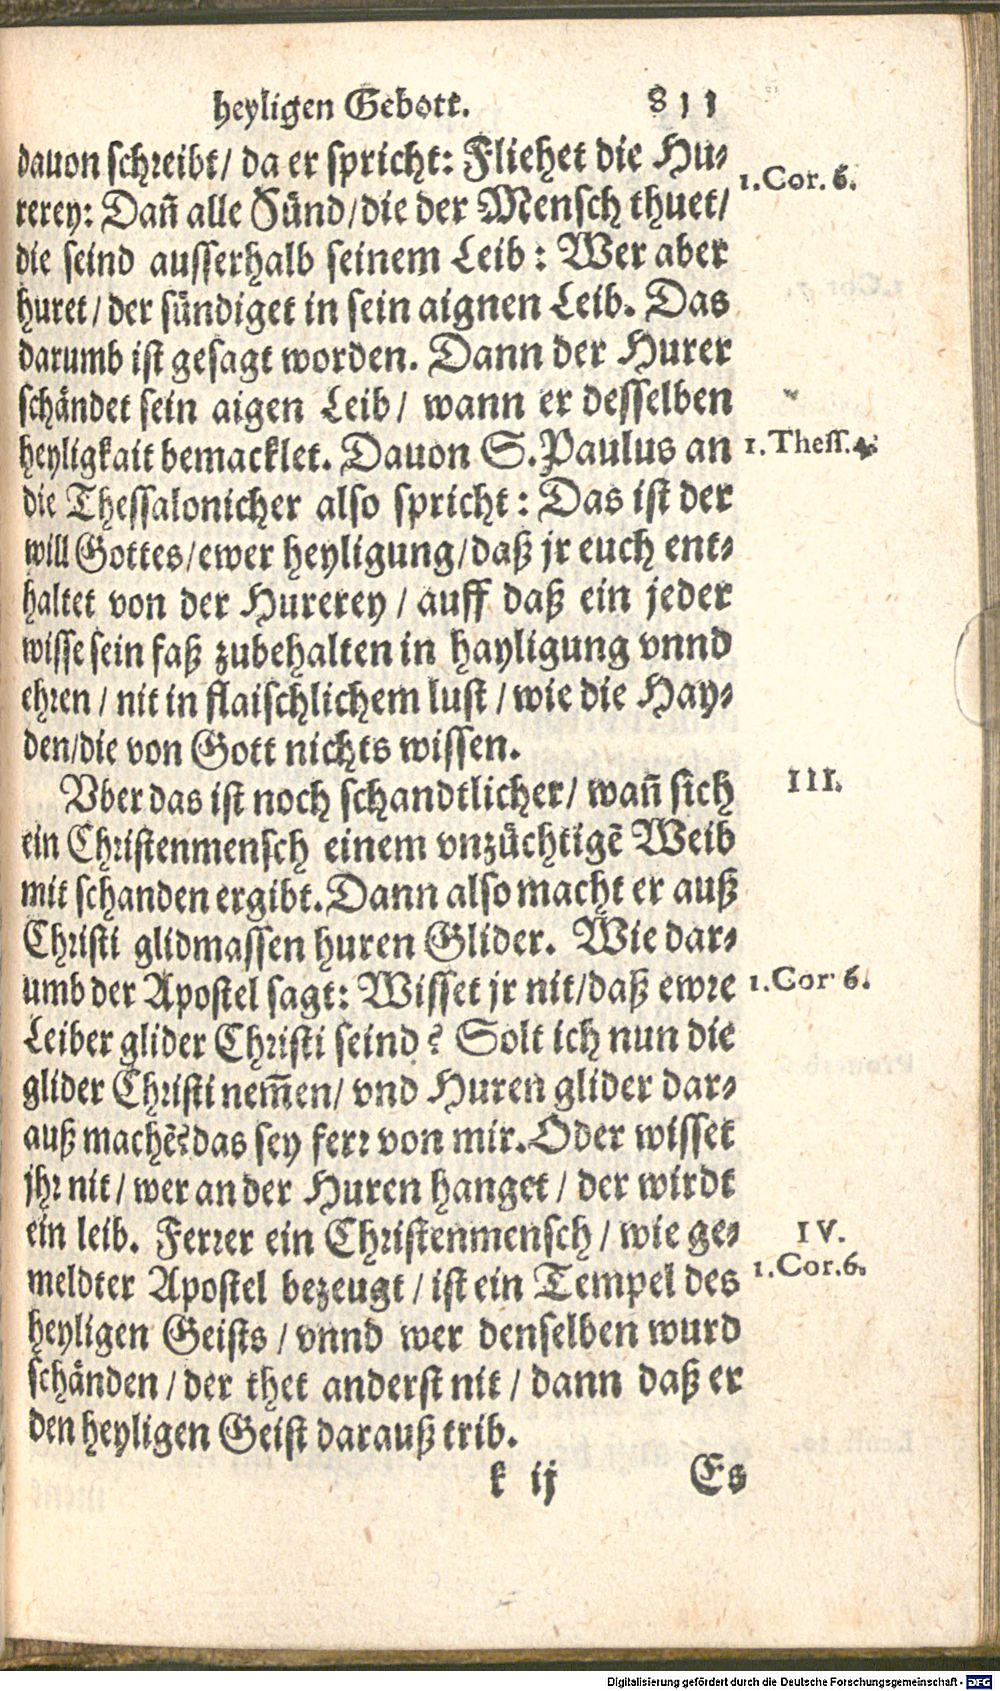 heyligen Gebott. 811
dauon schreibt/ da er spricht: Fliehet die Hu⸗
rerey: Dañ alle Sünd/die der Mensch thuet/
1.Cor. 6.
die seind ausserhalb seinem Leib: Wer aber
huret/ der sündiget in sein aignen Leib. Das
darumb ist gesagt worden. Dann der Hurer
schändet sein aigen Leib/ wann er desselben
heyligkait bemacklet. Dauon S. Paulus an
1. Thess. 4.
die Thessalonicher also spricht: Das ist der
will Gottes/ewer heyligung/daß jr euch ent⸗
haltet von der Hurerey/ auff daß ein jeder
wisse sein faß zubehalten in hayligung vnnd
ehren/ nit in flaischlichem lust/ wie die Hay⸗
den/die von Gott nichts wissen.
Vber das ist noch schandtlicher/ wañ sich
III.
ein Christenmensch einem vnzüchtigẽ Weib
mit schanden ergibt. Dann also macht er auß
Christi glidmassen huren Glider. Wie dar⸗
umb der Apostel sagt: Wisset jr nit/daß ewre
1.Cor 6.
Leiber glider Christi seind? Solt ich nun die
glider Christi nem̃en/ vnd Huren glider dar⸗
auß machẽ? das sey ferr von mir. Oder wisset
jhr nit/ wer an der Huren hanget/ der wirdt
ein leib. Ferrer ein Christenmensch/ wie ge⸗
IV.
meldter Apostel bezeugt/ ist ein Tempel des
1.Cor.6.
heyligen Geists/ vnnd wer denselben wurd
schänden/ der thet anderst nit/ dann daß er
den heyligen Geist darauß trib.
k ij Es
Digitalisierung gefördert durch die Deutsche Forschungsgemeinschaft - DFG